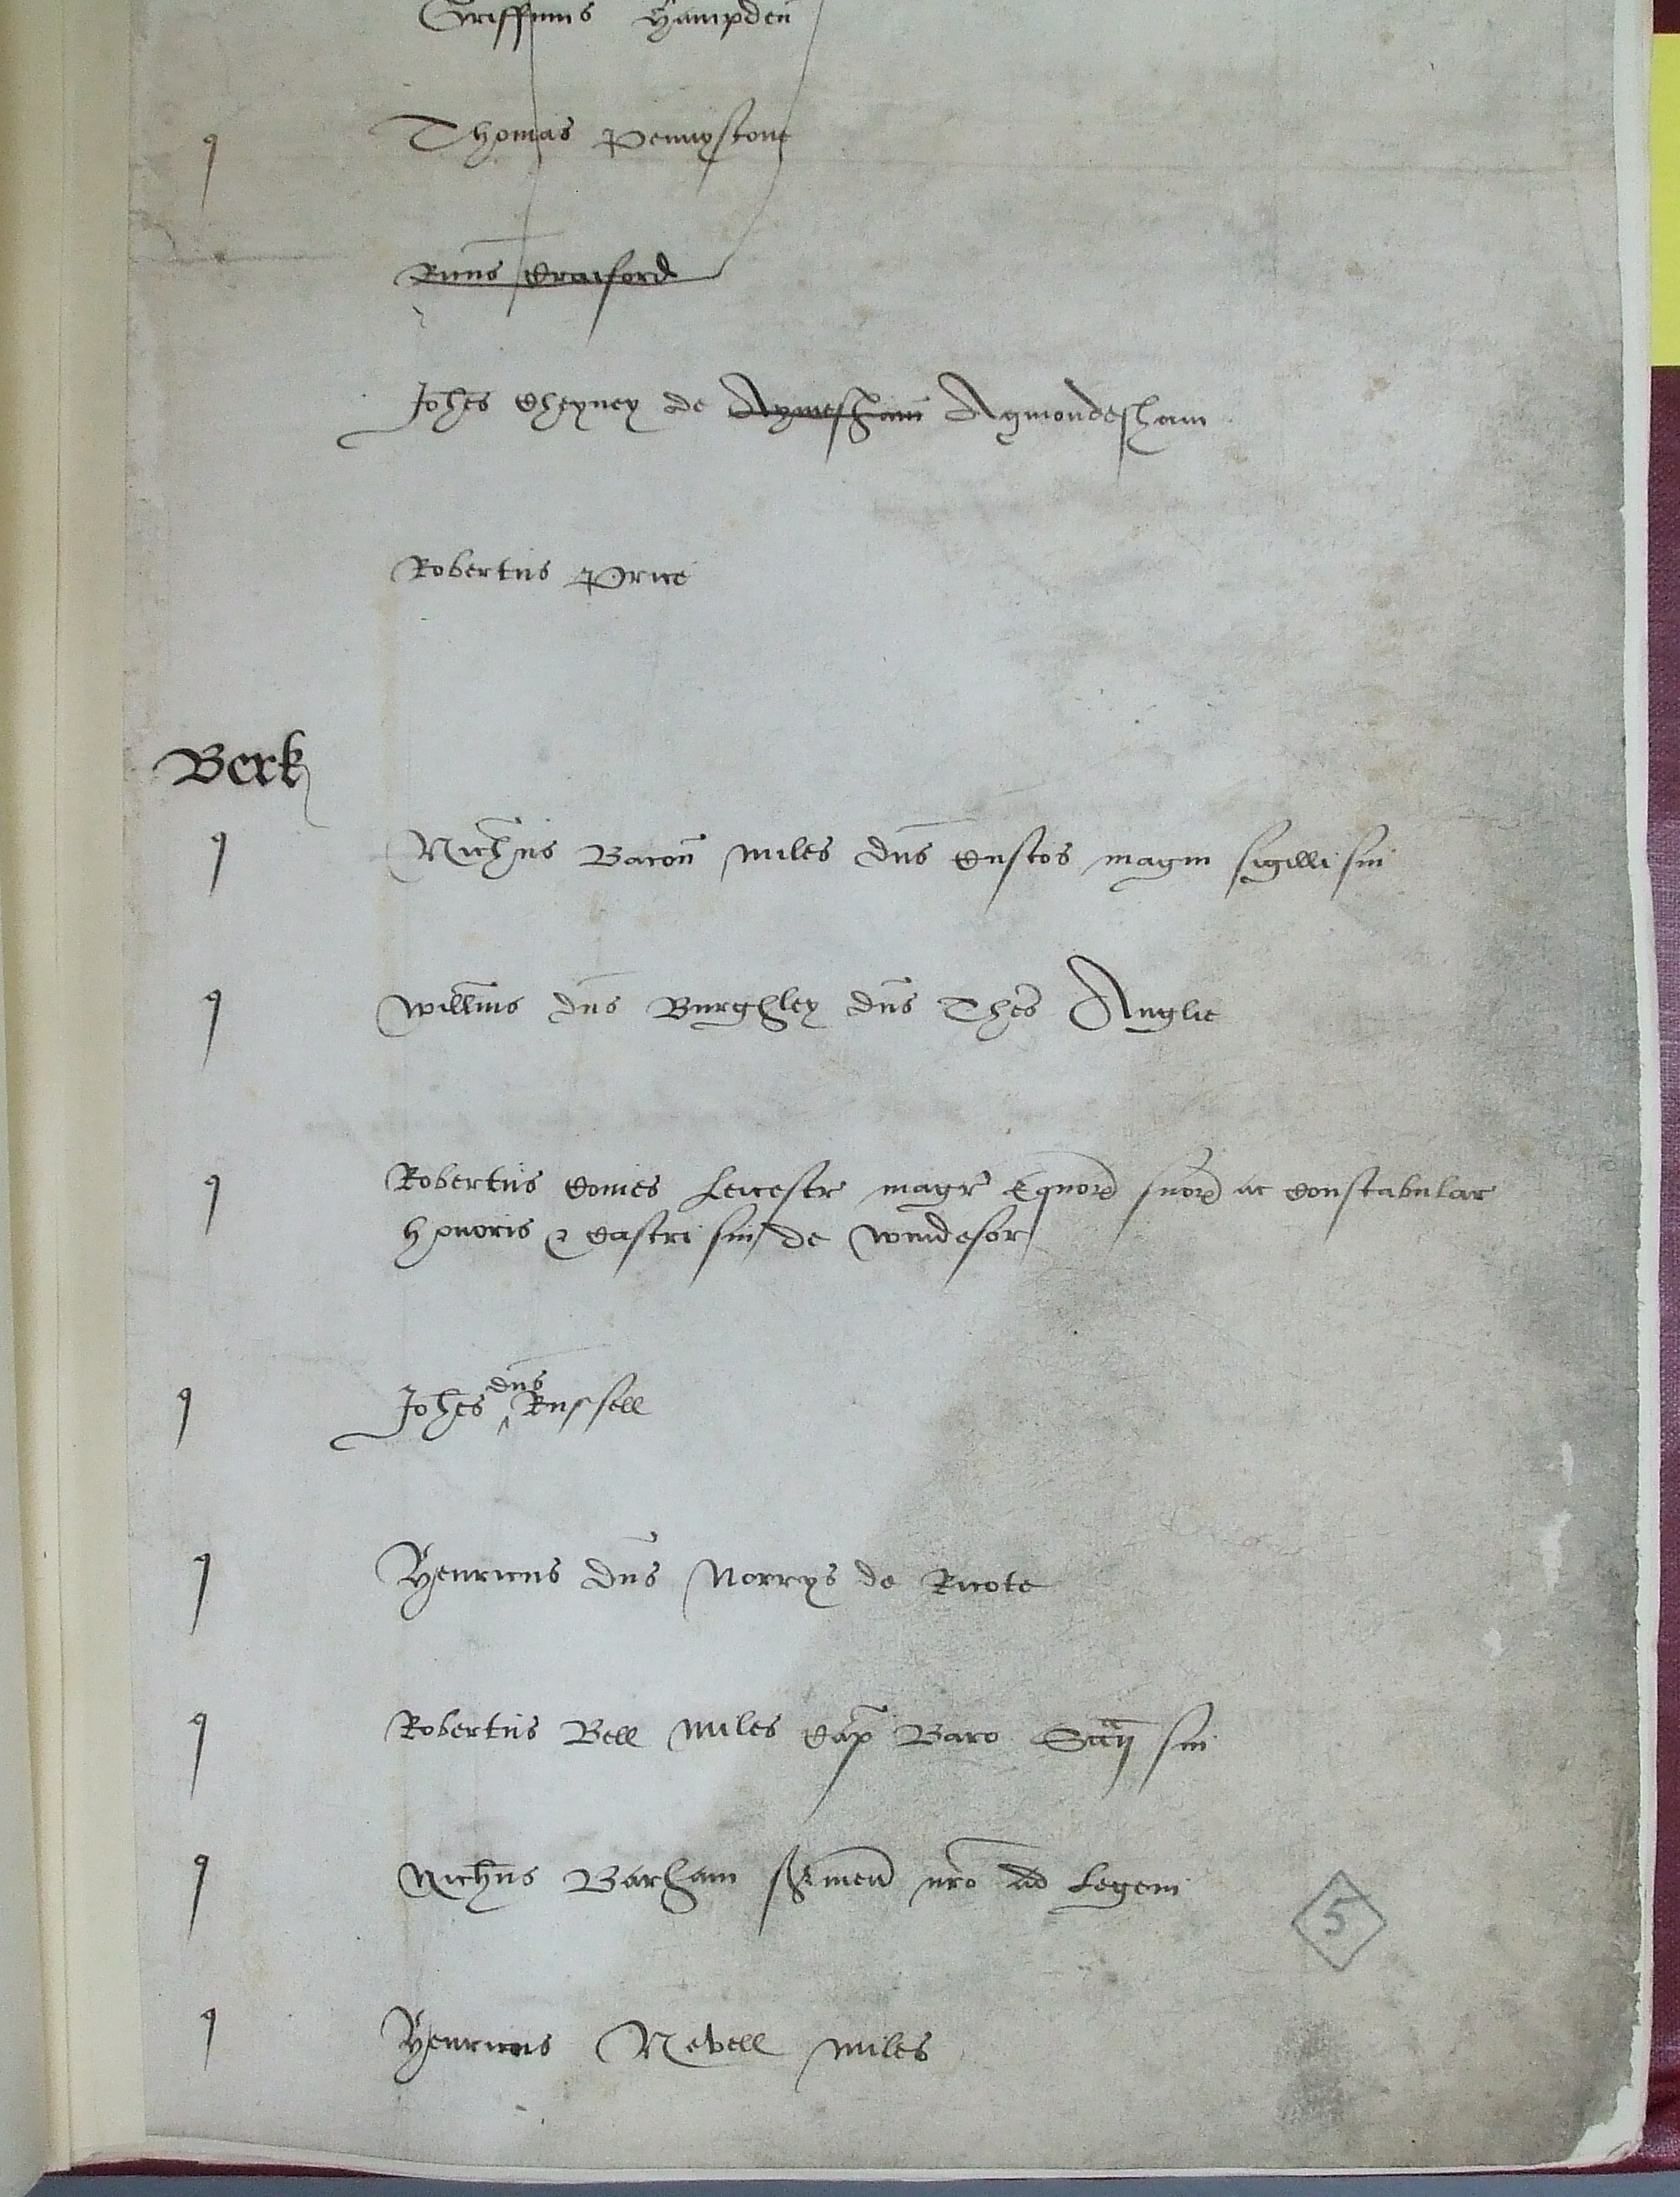 Griffinus Hampden
q Thomas Penyston
Rical
Johes Cheyney de Aymesham Agmondesham
Robertus Price
Berk
q Nichus Bacon miles dns Custos magni sigilli sui
q Willmus dns Burghley dns Thes Anglie
q Robertus Comes Leicestr magr Equor suor ac Constabular
honoris & Castri sui de Windesor
q Johes dns Russell
q Henricus dns Norrys de Ricote
q Robertus Bell miles Cap Baro Sccii sui
q Nichus Barham svien nro ad Legem
q Henricus Nevell miles
5